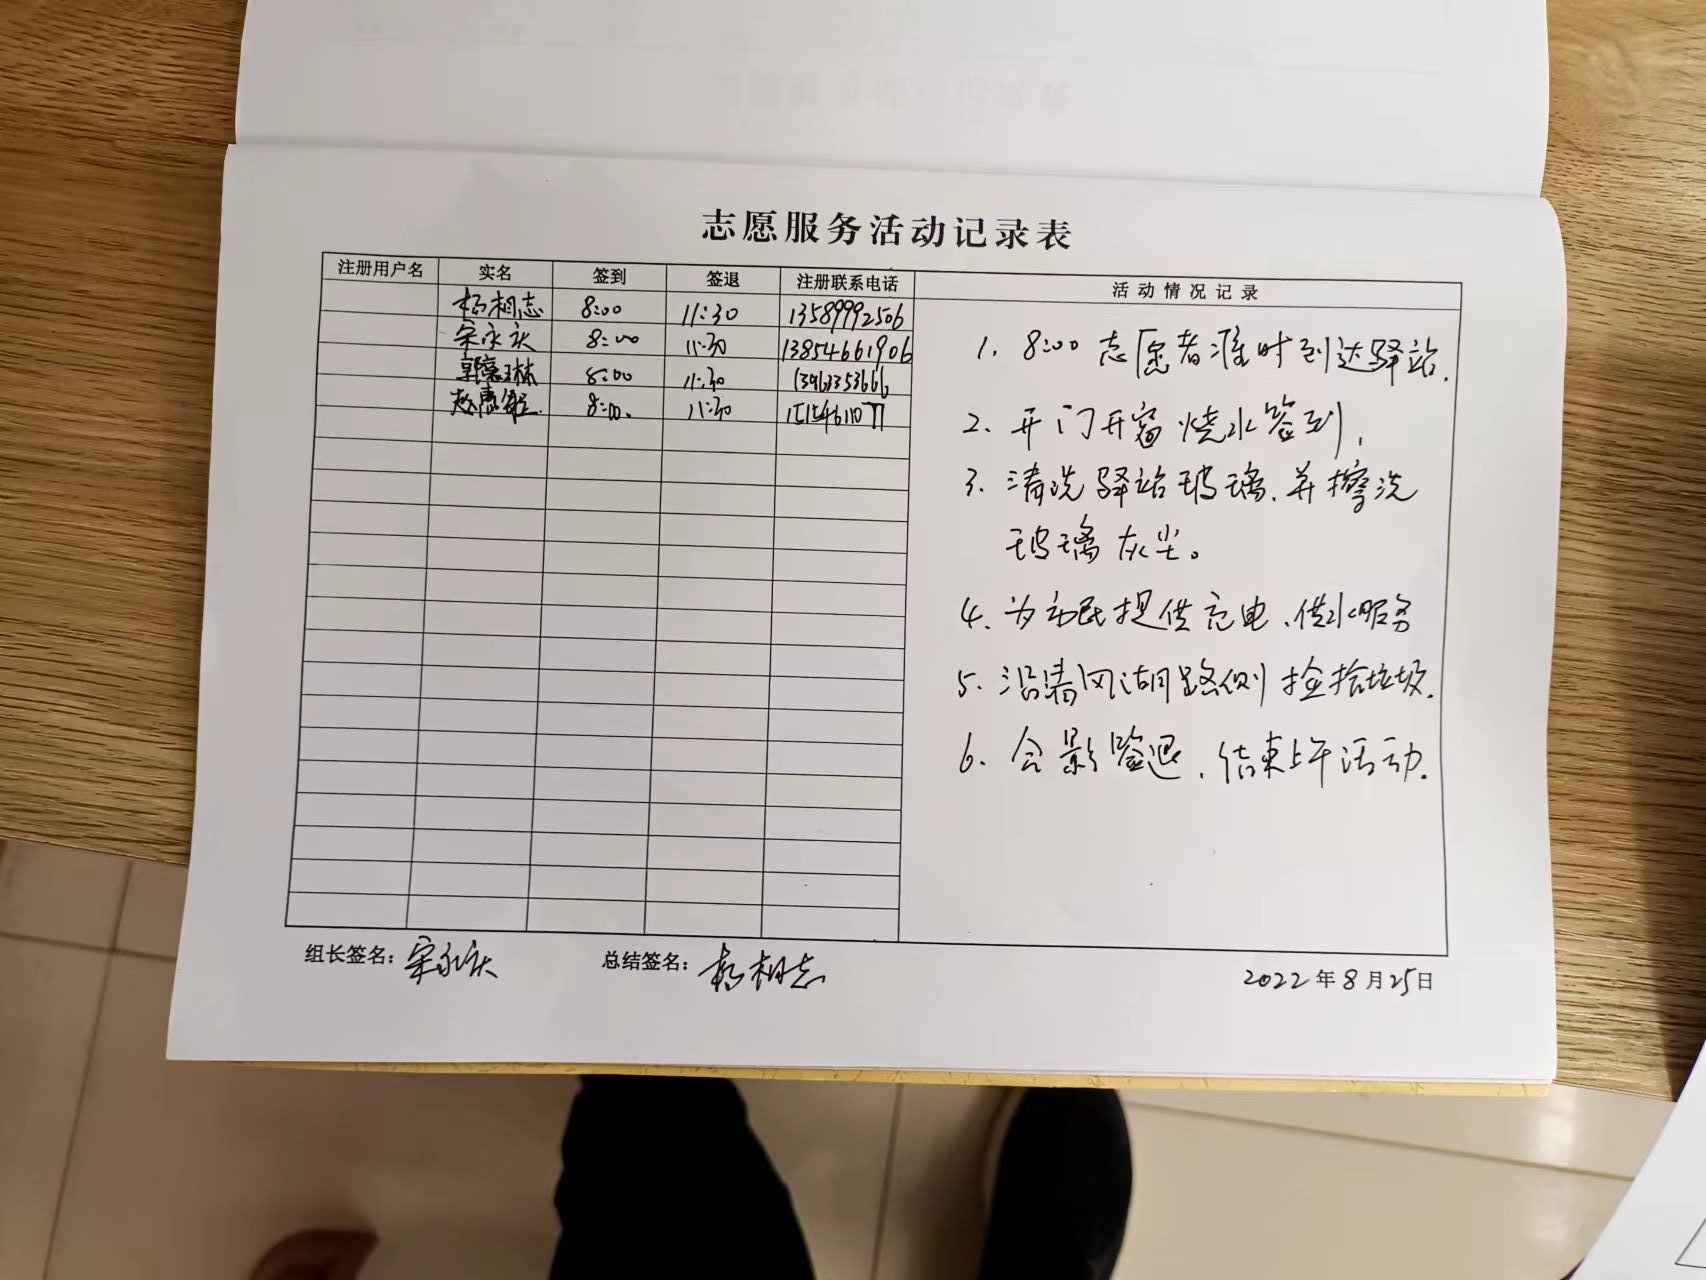 志愿服务活动记录表
注册用户名 实名 签到 签退 注册联系电话 活动情况记录
杨相志 8:00 11:30 13589992506
宋永庆 8:00 11:30 13854661906
郭 琳 8:00 11:30 13963353666
赵 8:00. 11:30
1. 8:00 志愿者准时到达驿站.
2. 开门开窗烧水签到,
3. 清洗驿站玻璃,并擦洗
玻璃灰尘。
4. 为市民提供充电、供水服务
5. 沿清风湖路侧捡拾垃圾.
6. 合影签退,结束上午活动.
组长签名: 宋永庆 总结签名: 杨相志 2022年8月25日